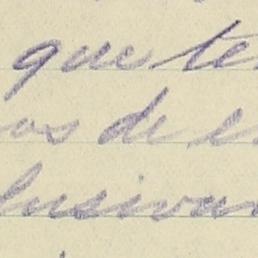 que te
os de e
lusivam